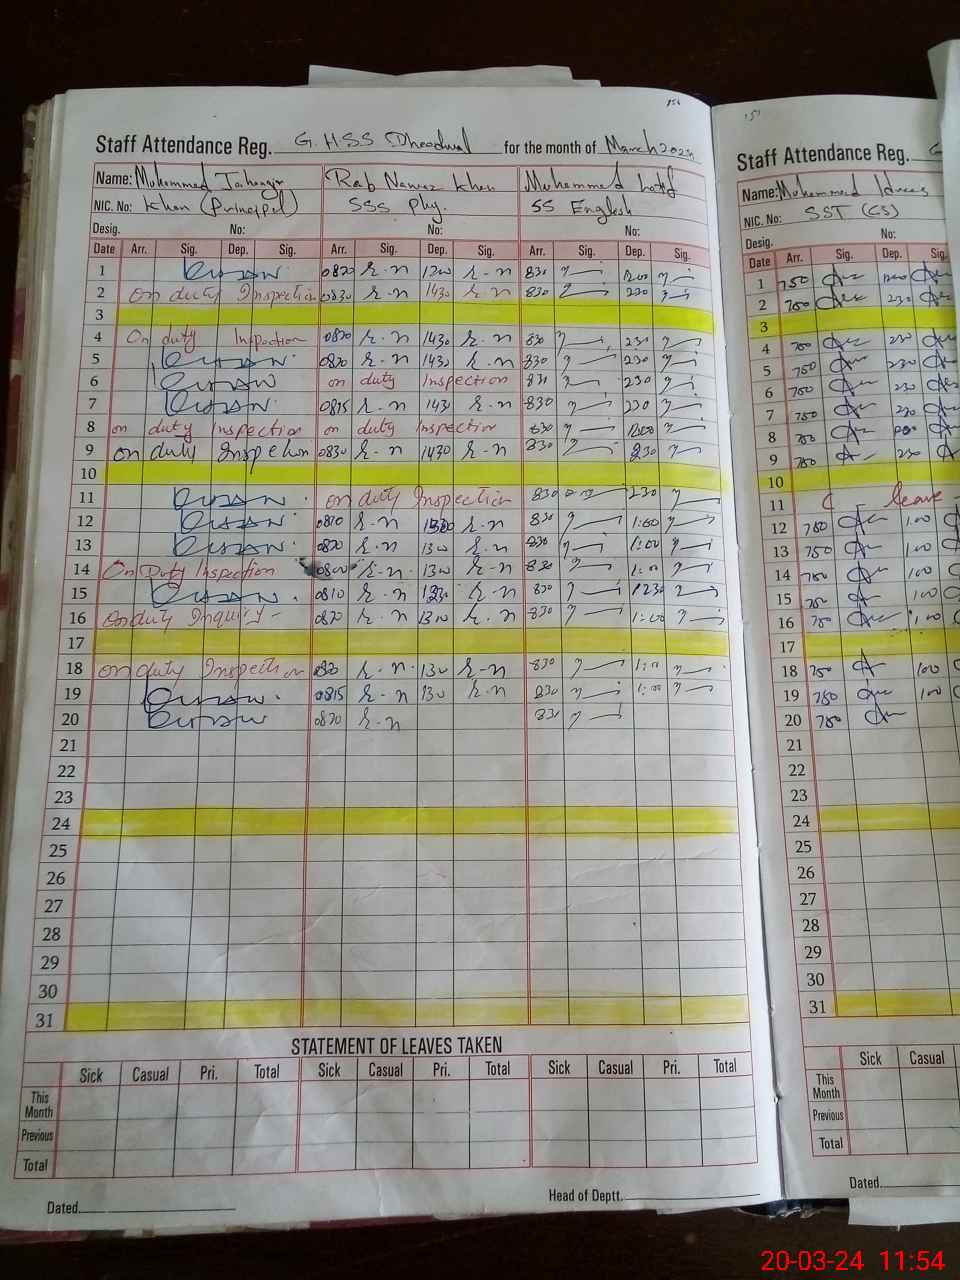 Staff Attendance Reg. G.HSS Dheodwal for the month of March 2024
Name: Muhammad Jahangir Rab Nawaz Khan Muhammad Latif
NIC. No: Khan (Principal) SSS Phy. SS English
Desig. No: No: No:
Date Arr. Sig. Dep. Sig. Arr. Sig. Dep. Sig. Arr. Sig. Dep. Sig.
1 0820 r-n 1200 r-n 830 1200
2 on duty Inspection 0830 r-n 1430 r-n 830 230
3
4 On duty Inspection 0820 r-n 1430 r-n 830 230
5 0820 r-n 1430 r-n 830 230
6 on duty Inspection 830 230
7 0815 r-n 1430 r-n 830 230
8 on duty Inspection on duty Inspection 830 1200
9 on duty Inspection 0830 r-n 1430 r-n 830 230
10
11 on duty Inspection 830 230
12 0810 r-n 1300 r-n 830 1:00
13 0820 r-n 1300 r-n 830 1:00
14 On Duty Inspection 0800 r-n 1300 r-n 830 1:00
15 0810 r-n r-n 830 1230
16 on duty Inquiry - 0820 r-n 1310 r-n 830 1:00
17
18 on duty Inspection 0820 r-n 1300 r-n 830 1:00
19 0815 r-n 1300 r-n 830 1:00
20 0820 r-n 830
21
22
23
24
25
26
27
28
29
30
31
STATEMENT OF LEAVES TAKEN
Sick Casual Pri. Total Sick Casual Pri. Total Sick Casual Pri. Total
This Month
Previous
Total
Dated Head of Deptt.
Staff Attendance Reg. G
Name: Muhammad Idrees
NIC. No: SST (CS)
Desig. No:
Date Arr. Sig. Dep. Sig.
1 750 1200
2 750 230
3
4 750 230
5 750 230
6 750 230
7 750 230
8 750
9 750 230
10
11 C - leave -
12 750 1:00
13 750 100
14 750 100
15 750 100
16 750 1:00
17
18 750 100
19 750 100
20 750
21
22
23
24
25
26
27
28
29
30
31
Sick Casual
This Month
Previous
Total
Dated
20-03-24 11:54